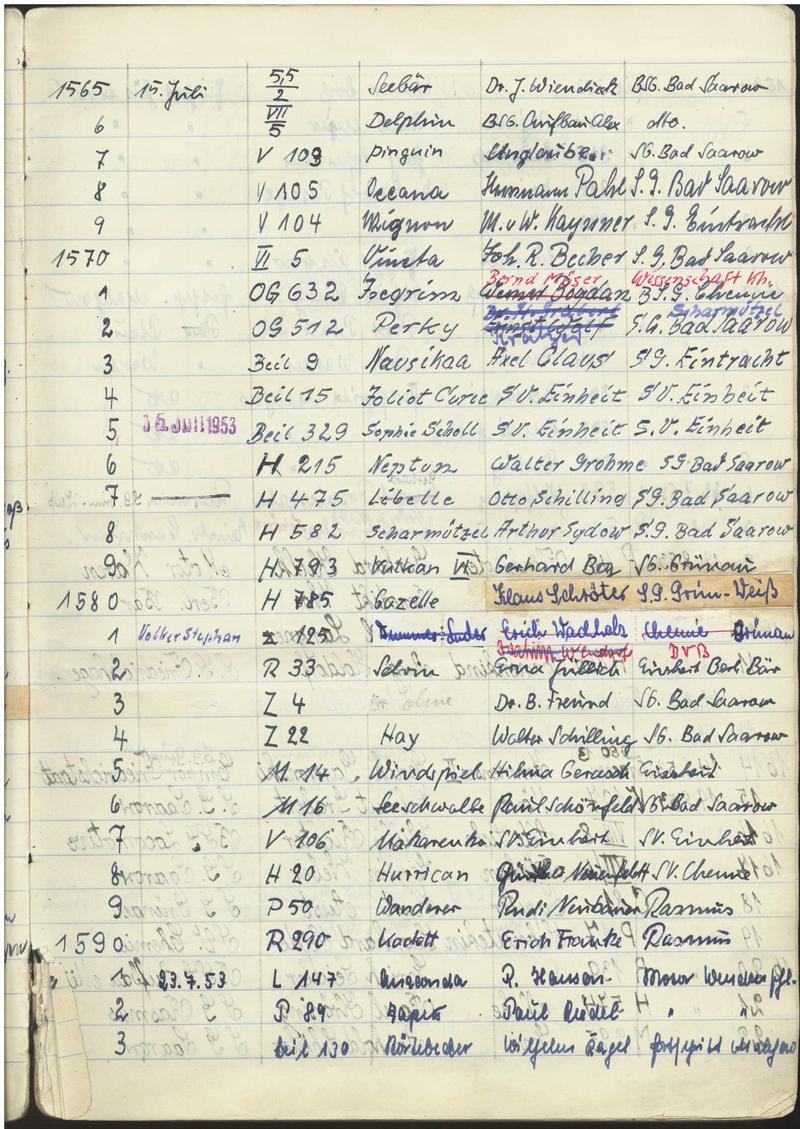 1565 15. Juli 5,5/2 Seebär Dr. J. Wiendieck BSG. Bad Saarow
6 VII/5 Delphin BSG. Aufbau Alex dto.
7 V 109 Pinguin Unglaube SG. Bad Saarow
8 V 105 Oceana Hermann Pahl S.G. Bad Saarow
9 V 104 Mignon M. v W. Kaysner S.G. Eintracht
1570 VI 5 Vineta Joh. R. Becher S.G. Bad Saarow
Bernd Möser Wissenschaft
1 OG 632 Isegrim Werner Bogdan B.S.G. Chemie
Scharmützel
2 OG 512 Perky S.G. Bad Saarow
3 Beil 9 Nausikaa Axel Claus SG. Eintracht
4 Beil 15 Joliot Curie SV. Einheit SV. Einheit
5 16. Juli 1953 Beil 329 Sophie Scholl SV. Einheit S.V. Einheit
6 H 215 Neptun Walter Grohme SG Bad Saarow
7 H 475 Libelle Otto Schilling S.G. Bad Saarow
8 H 582 Scharmützel Arthur Sydow S.G. Bad Saarow
9 H 793 Vulkan VI Gerhard Beg SG. Grünau
1580 H 785 Gazelle Klaus Schröter S.G. Grün-Weiß
1 Volker Stephan Z 125 Erich Wachholz Chemie Grünau
Joachim Wendorf DVB
2 R 33 Solvin Erna Jüllich Einheit Berl. Bär
3 Z 4 ohne Dr. B. Freund SG. Bad Saarow
4 Z 22 Hay Walter Schilling SG. Bad Saarow
5 M 14 Windspiel Hilma Gerasch Einheit
6 M 16 Seeschwalbe Paul Schönfeld SG. Bad Saarow
7 V 106 Makarenko SV. Einheit SV. Einheit
8 H 20 Hurrican Günther Neuenfeldt SV. Chemie
9 P 50 Wanderer Rudi Neubauer Rasmus
1590 R 290 Kadett Erich Franke Rasmus
1 23.7.53 L 147 Anaconda R. Hanson Motor
2 P 89 Paul Riedel " "
3 Beil 130 Wilhelm Nagel